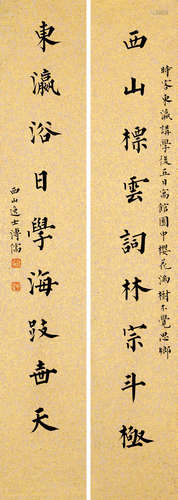 西山標雲詞林宗斗極
時客東瀛講學後五日寓館園中櫻花滿樹不覺思鄉
東瀛浴日學海跂壺天
西山逸士溥儒